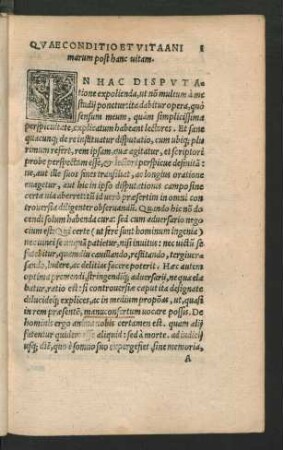 QVAE CONDITIO ET VITA ANI 1
marum post hanc uitam.
IN HAC DISPVTA
tione expolienda, ut nō multum à me
studij ponitur ita dabitur opera, quò
sensum meum, quàm simplicissima
perspicuitate, explicatum habeant lectores. Et sanè
quacunq; de re instituatur disputatio, cum ubiq; plu
rimum refert, rem ipsam, quæ agitatur, et scriptori
probè perspectam esse, & lectori perspicuè definitā:
tur, aut hic in ipso disputationis campo sine
certa uia aberret: tū id uerò præsertim in omni con
trouersia diligenter obseruandū.
cendi solum habenda cura: sed cum aduersario nego
cium est: Qui certè (ut ferè sunt hominum ingenia)
nec uinci se unquā patietur, nisi inuitus: nec uictū se
fatebitur, quamdiu cauillando, restitando, tergiuer
sando, ludere, ac delitias facere poterit. Hac autem
optima premendi, stringendiq; aduersarij, ne qua ela
batur, ratio est: si controuersiæ caput ita designatè
dilucidèq; explices, ac in medium proponas, ut, quasi
in rem præsentē, manu consertum uocare possis. De
hominis ergo anima nobis certamen est. quam alij
fatentur quidem esse aliquid: sed à morte, ad iudicij
usq; diē, quo è somno suo expergefiet, sine memoria,
A